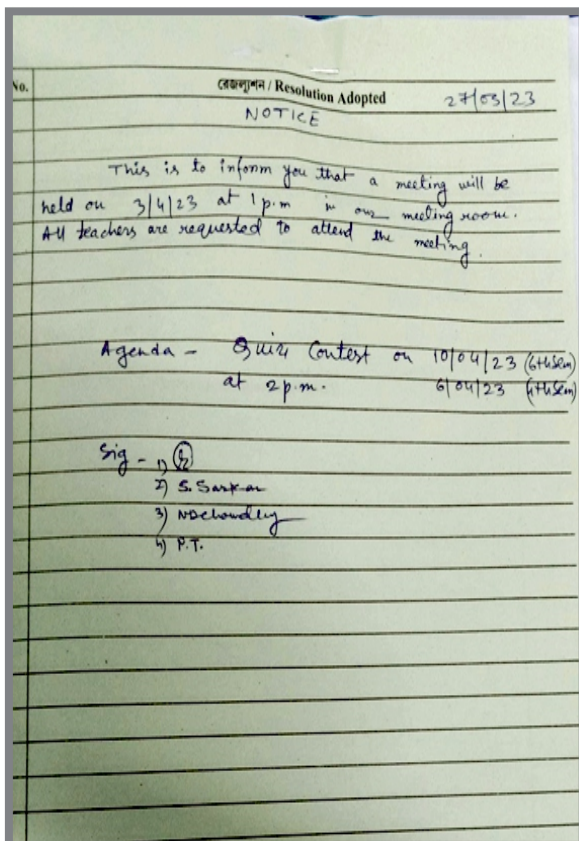 No.
রেজল্যুশন / Resolution Adopted
27/03/23
NOTICE
This is to inform you that a meeting will be
held on 3/4/23 at 1 p.m in our meeting room.
All teachers are requested to attend the meeting.
Agenda - Quiz Contest on 10/04/23 (6th Sem)
at 2 p.m. 6/04/23 (4th Sem)
Sig - 1)
2) S. Sarkar
3) NDchowdhury
4) P.T.